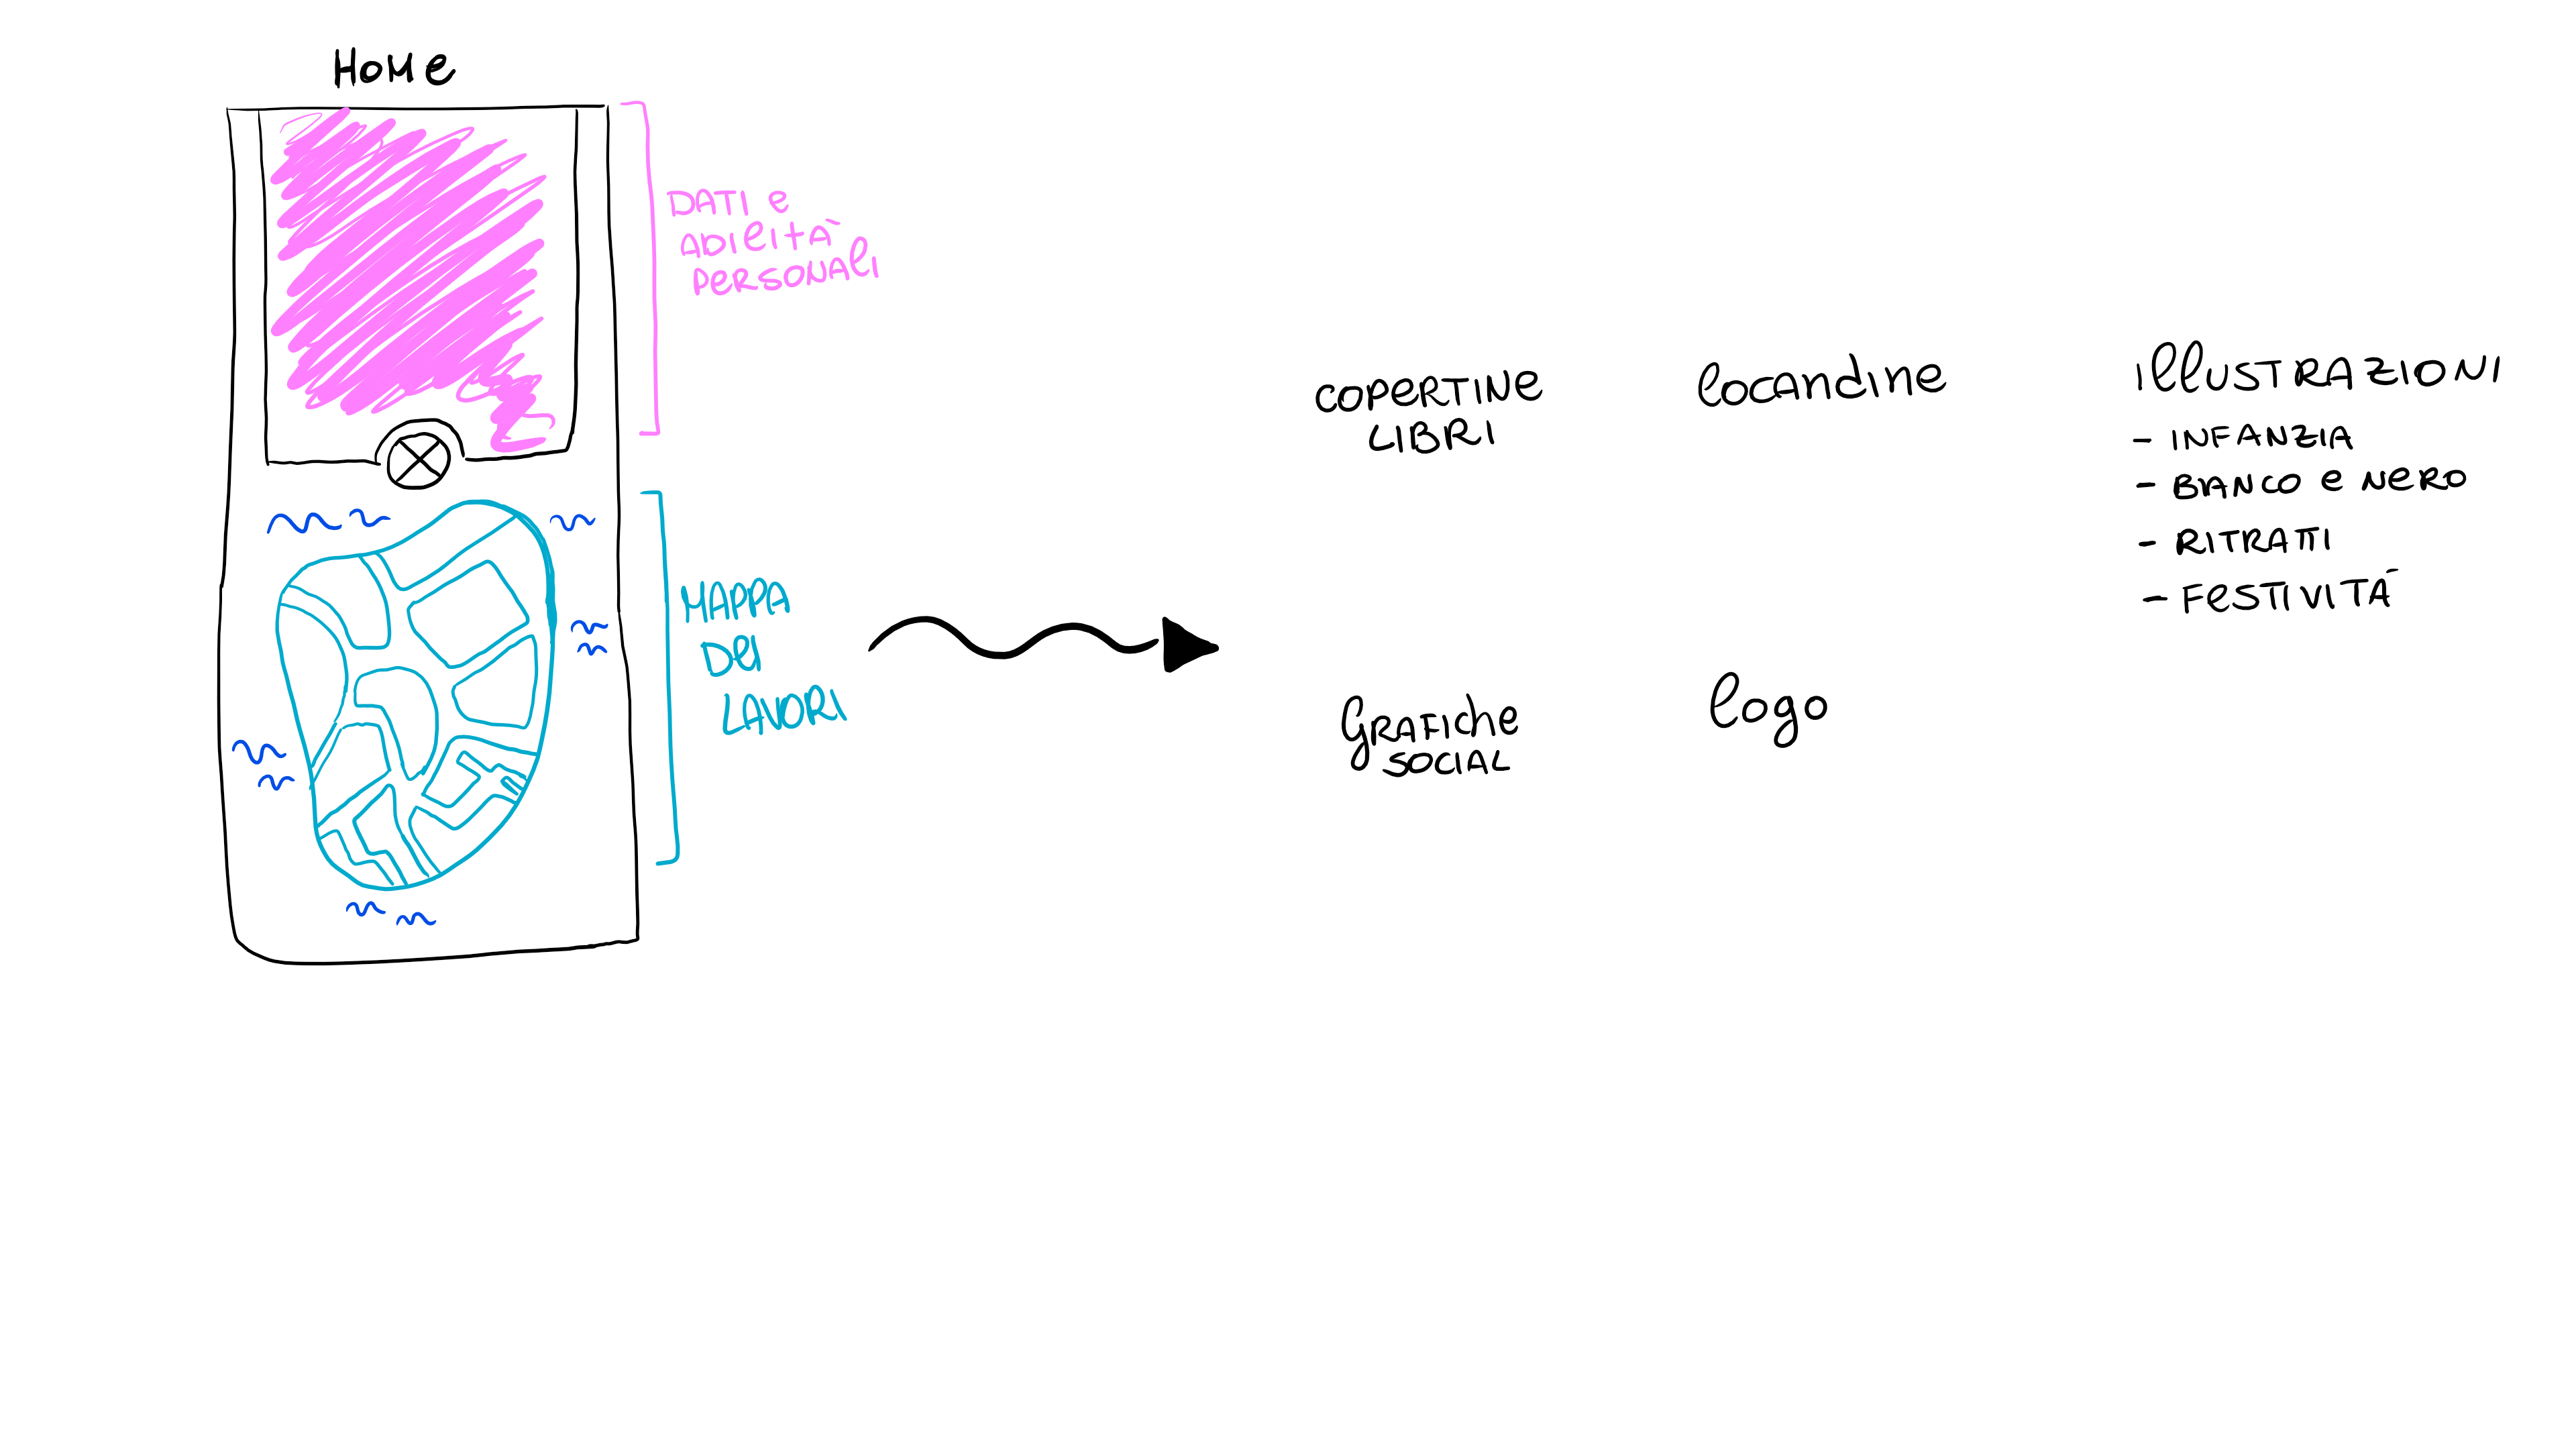 Home
DATI e
ABILITÀ
PERSONALI
MAPPA
DEI
LAVORI
COPERTINE
LIBRI
locandine
illUSTRAZIONI
- INFANZIA
- BIANCO e NERO
- RITRATTI
- FESTIVITÀ
GRAFICHE
SOCIAL
logo